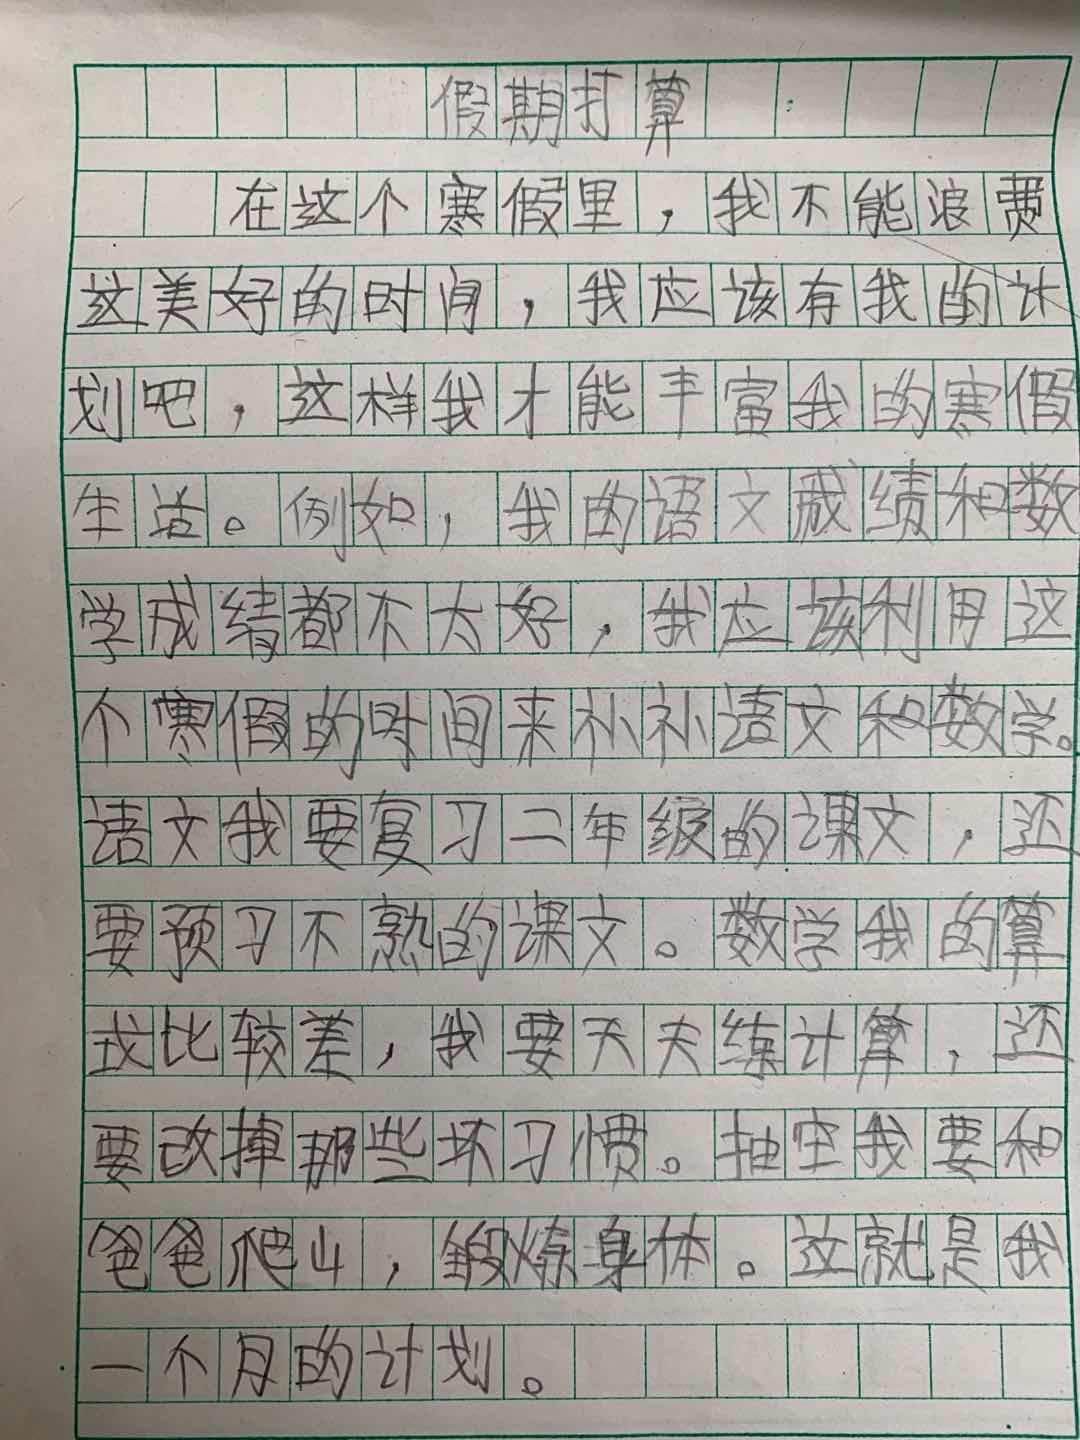 假期打算
在这个寒假里，我不能浪费
这美好的时间，我应该有我的计
划吧，这样我才能丰富我的寒假
生活。例如，我的语文成绩和数
学成绩都不太好，我应该利用这
个寒假的时间来补补语文和数学。
语文我要复习二年级的课文，还
要预习不熟的课文。数学我的算
式比较差，我要天天练计算，还
要改掉那些坏习惯。抽空我要和
爸爸爬山，锻炼身体。这就是我
一个月的计划。